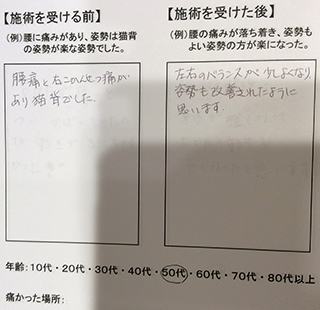 【施術を受ける前】
(例)腰に痛みがあり、姿勢は猫背
の姿勢が楽な姿勢でした。
腰痛と右こかんせつ痛が
あり猫背でした.
【施術を受けた後】
(例)腰の痛みが落ち着き、姿勢も
よい姿勢の方が楽になった。
左右のバランスが少しよくなり
姿勢も改善されたように
思います.
年齢:10代・20代・30代・40代・50代・60代・70代・80代以上
痛かった場所: